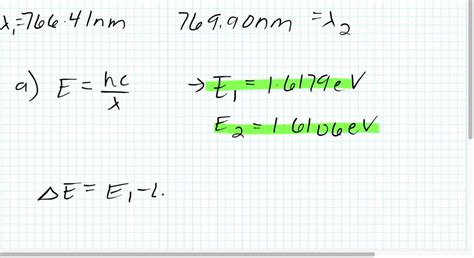 λ₁=766.41nm 769.90nm =λ₂
a) E = hc/λ → E₁ = 1.6179eV
E₂ = 1.6106eV
ΔE = E₁-